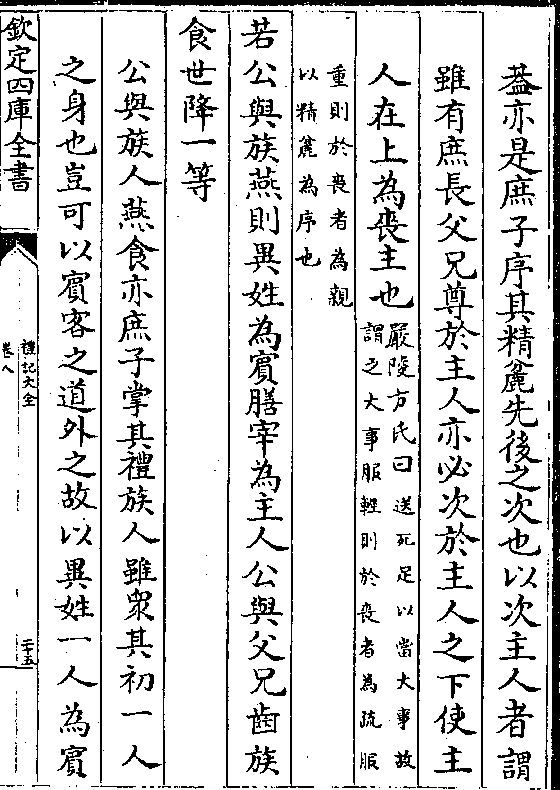 葢亦是庶子序其精麄先後之次也以次主人者謂
雖有庶長父兄尊於主人亦必次於主人之下使主
人在上為喪主也
嚴陵方氏曰送死足以當大事故
謂之大事服輕則於喪者為疏服
重則於喪者為親
以精麄為序也
若公與族燕則異姓為賓膳宰為主人公與父兄齒族
食世降一等
公與族人燕食亦庶子掌其禮族人雖衆其初一人
之身也豈可以賓客之道外之故以異姓一人為賓
欽定四庫全書
禮記大全
卷八
二十五